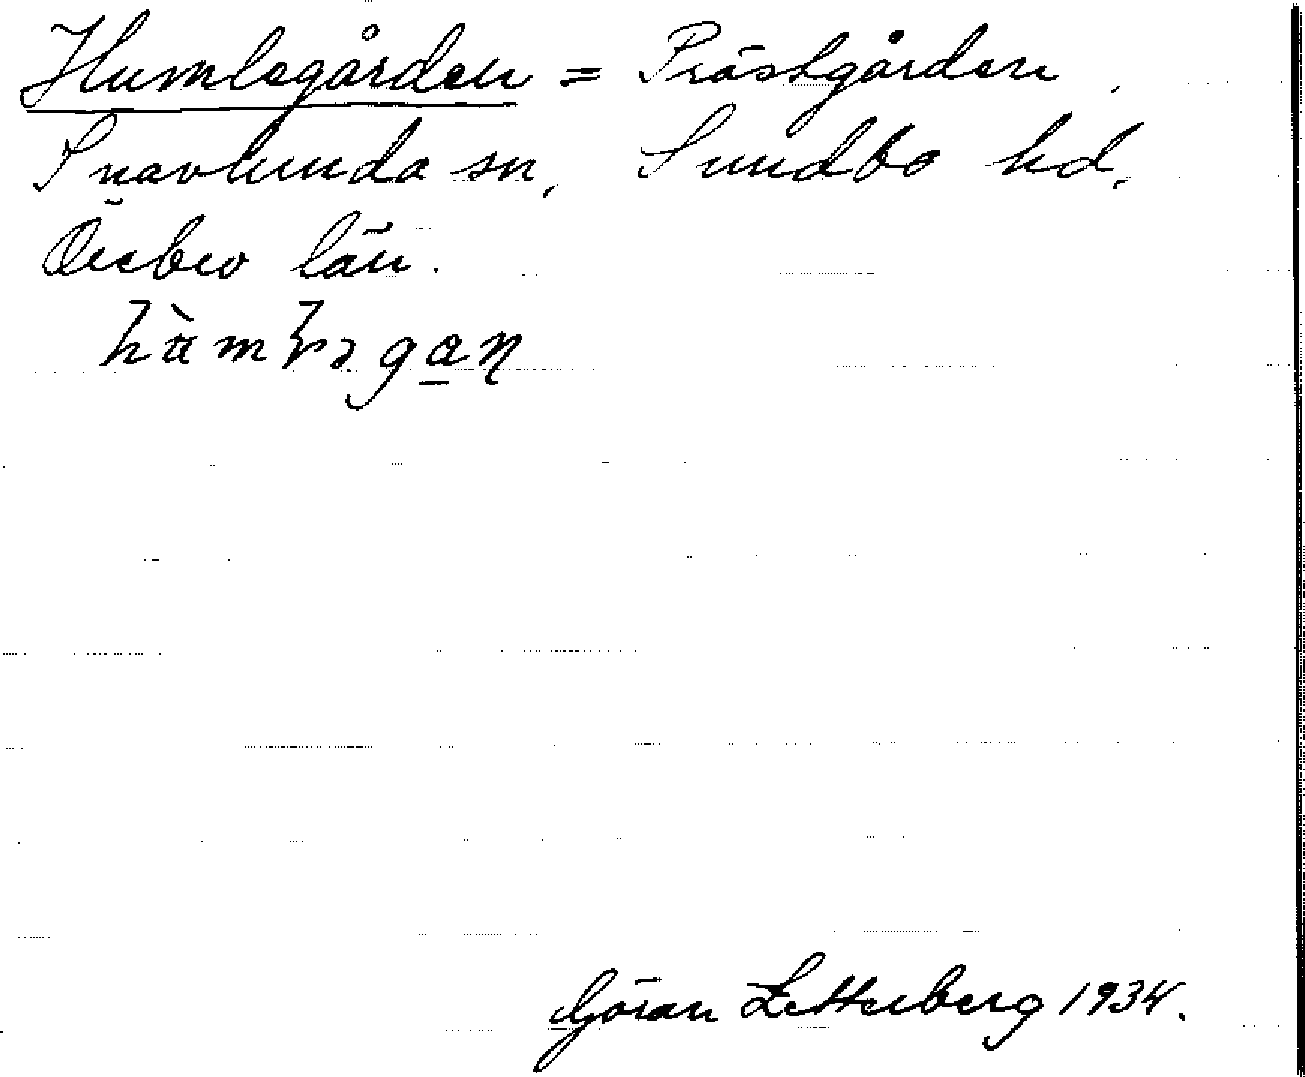 Humlegården = Prästgården.
Snavlunda sn, Sundbo hd,
Örebro län.
Göran Zetterberg 1934.